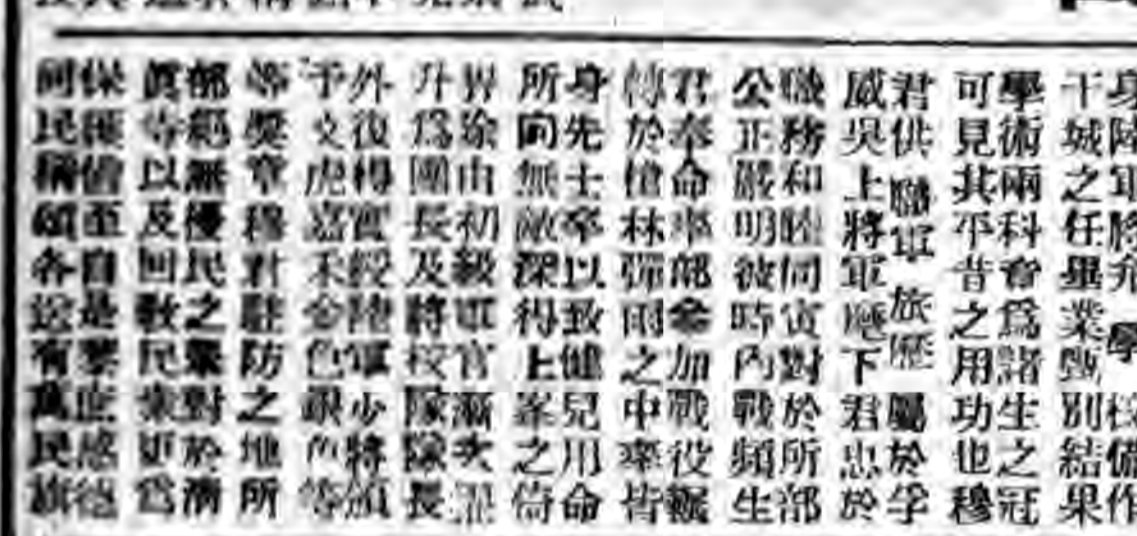 身陸軍將介學校備作
干城之任畢業甄別結果
學術兩科為諸生之冠
可見其平昔之用功也穆
君供職軍旅歷屬於孚
威吳上將軍麾下君忠於
職務和睦同寅對於所部
公正嚴明彼時內戰頻生
君奉命率部參加戰役輾
轉於槍林彈雨之中率皆
身先士卒以致健兒用命
所向無敵深得上峯之倚
畀除由初級軍官漸次
升為團長及將校隊隊長
外復得實授陸軍少將頒
予文虎嘉禾金色銀色等
等獎章穆對駐防之地所
部絕無擾民之舉對於清
眞寺以及回教民衆更為
保護備至自是黎庶感德
同民稱頌各送有萬民旗